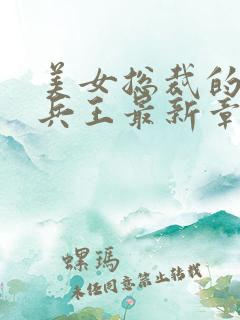 美女总裁的
兵王最新章
螺玛
未经同意禁止转载